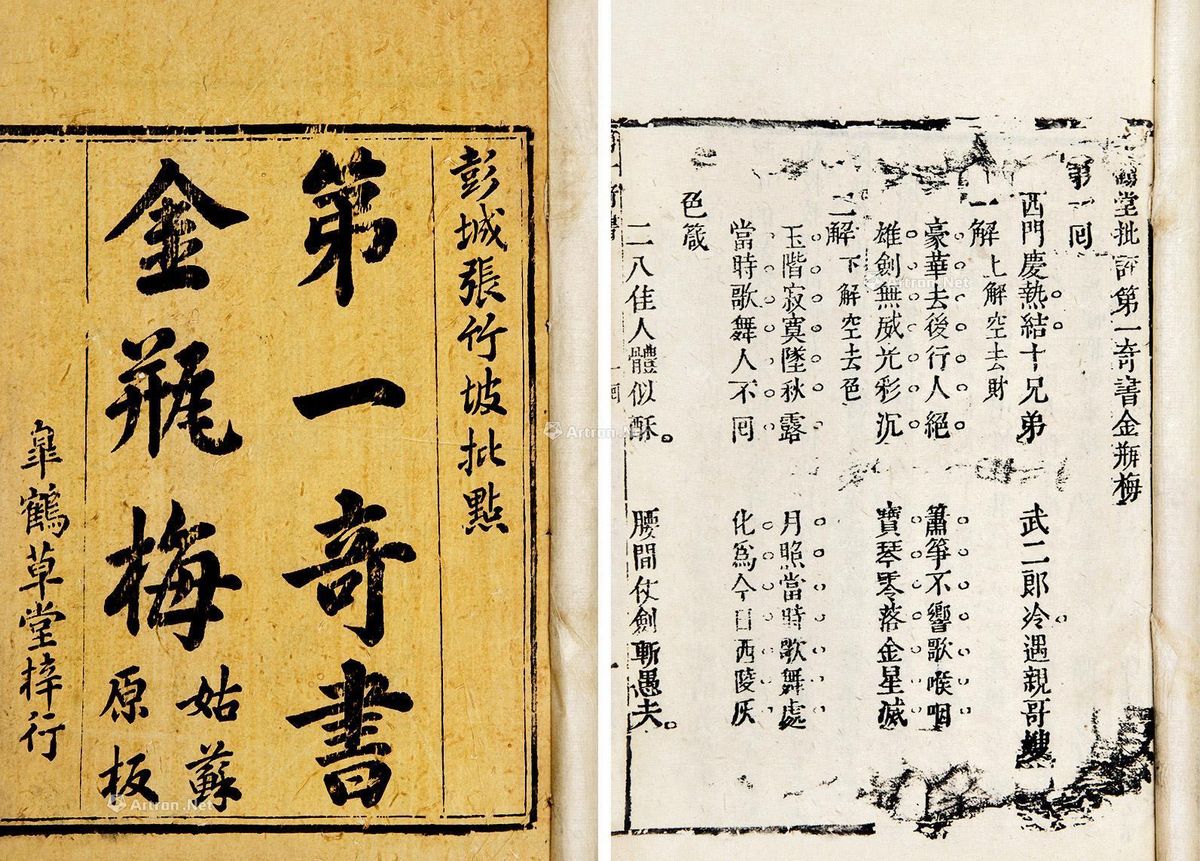 彭城張竹坡批點
第一奇書
金瓶梅
姑蘇
原板
臯鶴草堂梓行
Artron.Net
鶴堂批評第一奇書金瓶梅
第一囘
西門慶熱結十兄弟 武二郎冷遇親哥嫂
一解 上解空去財
豪華去後行人絕 簫箏不響歌喉咽
雄劍無威光彩沉 寶琴零落金星滅
二解 下解空去色
玉階寂寞墜秋露 月照當時歌舞處
當時歌舞人不囘 化爲今日西陵灰
色箴
二八佳人體似酥。 腰間仗劍斬愚夫。
一囘
一
Artron.Net
Artron.Net